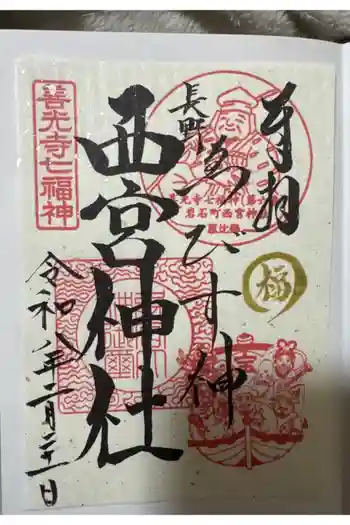 奉拝
長野
ゑびす神
西宮神社
善光寺七福神
善光寺七福神(第六番)
岩石町西宮神社
恵比寿
福
令和八年二月二十一日